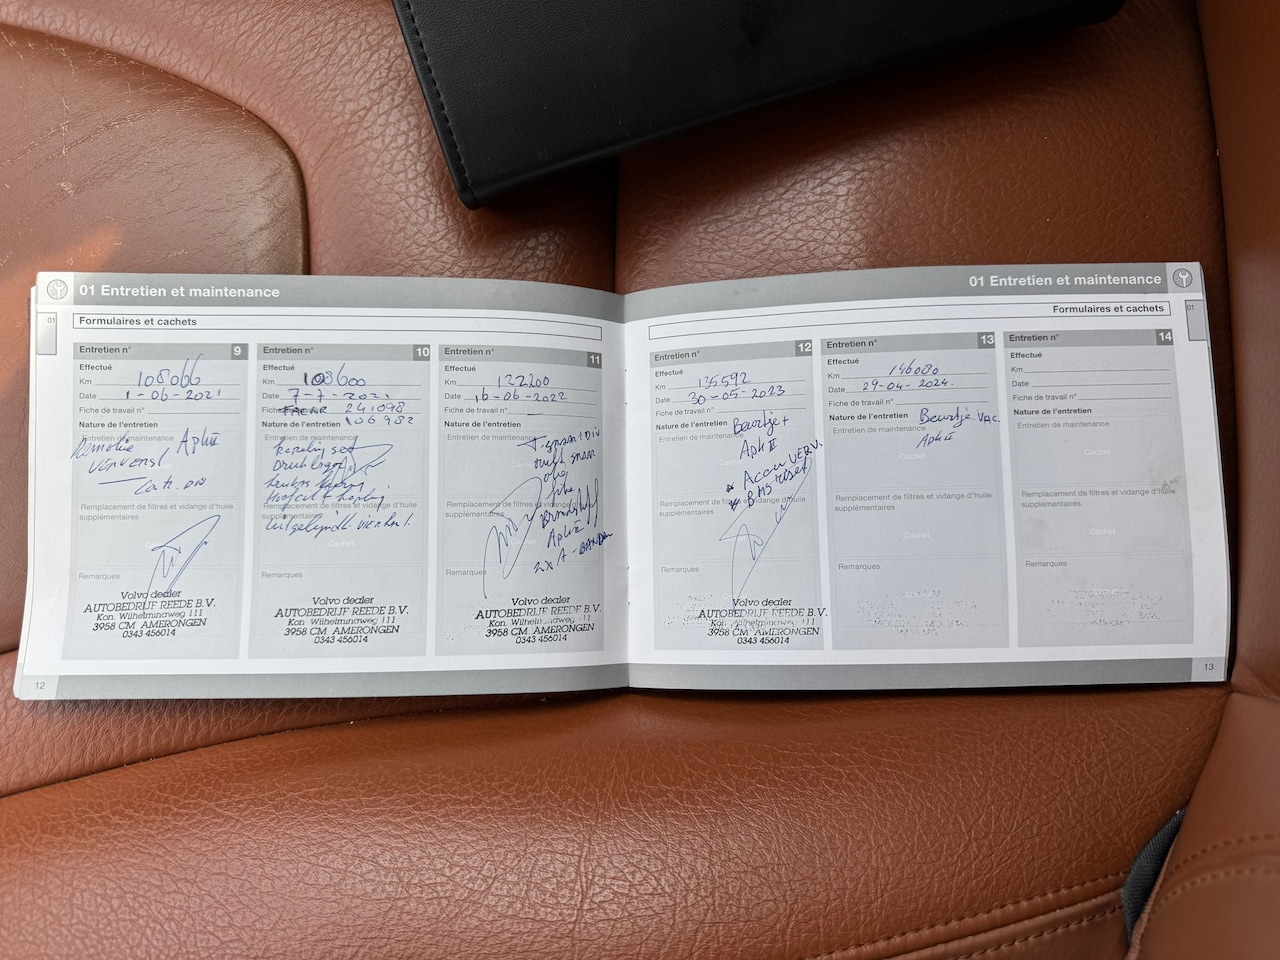 01 Entretien et maintenance
01
Formulaires et cachets
Entretien n° 9
Effectué
Km 108066
Date 1-06-2021
Fiche de travail n°
Nature de l'entretien
Entretien de maintenance
Remolie APKII
VERVERST
Cachet
Remplacement de filtres et vidange d'huile
supplémentaires
Cachet
Remarques
Volvo dealer
AUTOBEDRIJF REEDE B.V.
Kon. Wilhelminaweg 111
3958 CM AMERONGEN
0343 456014
Entretien n° 10
Effectué
Km 108600
Date 7-7-2021
Fiche de travail n° 241098
106982
Nature de l'entretien
Entretien de maintenance
Remplacement de filtres et vidange d'huile
supplémentaires
Cachet
Remarques
Volvo dealer
AUTOBEDRIJF REEDE B.V.
Kon. Wilhelminaweg 111
3958 CM AMERONGEN
0343 456014
Entretien n° 11
Effectué
Km 122200
Date 16-06-2022
Fiche de travail n°
Nature de l'entretien
Entretien de maintenance
T-snaar + Div
Cachet
olie
Remplacement de filtres et vidange d'huile
supplémentaires
APKII
2x A-BANDEN
Remarques
Volvo dealer
AUTOBEDRIJF REEDE B.V.
Kon. Wilhelminaweg 111
3958 CM AMERONGEN
0343 456014
12
01 Entretien et maintenance
01
Formulaires et cachets
Entretien n° 12
Effectué
Km 135592
Date 30-05-2023
Fiche de travail n°
Nature de l'entretien
Beurtje +
Entretien de maintenance
APKII
Accu VERV.
BMS reset
Remplacement de filtres et vidange d'huile
supplémentaires
Remarques
Volvo dealer
AUTOBEDRIJF REEDE B.V.
Kon. Wilhelminaweg 111
3958 CM AMERONGEN
0343 456014
Entretien n° 13
Effectué
Km 146080
Date 29-04-2024.
Fiche de travail n°
Nature de l'entretien
Beurtje
Entretien de maintenance
APKII
Cachet
Remplacement de filtres et vidange d'huile
supplémentaires
Cachet
Remarques
Entretien n° 14
Effectué
Km
Date
Fiche de travail n°
Nature de l'entretien
Entretien de maintenance
Cachet
Remplacement de filtres et vidange d'huile
supplémentaires
Cachet
Remarques
13